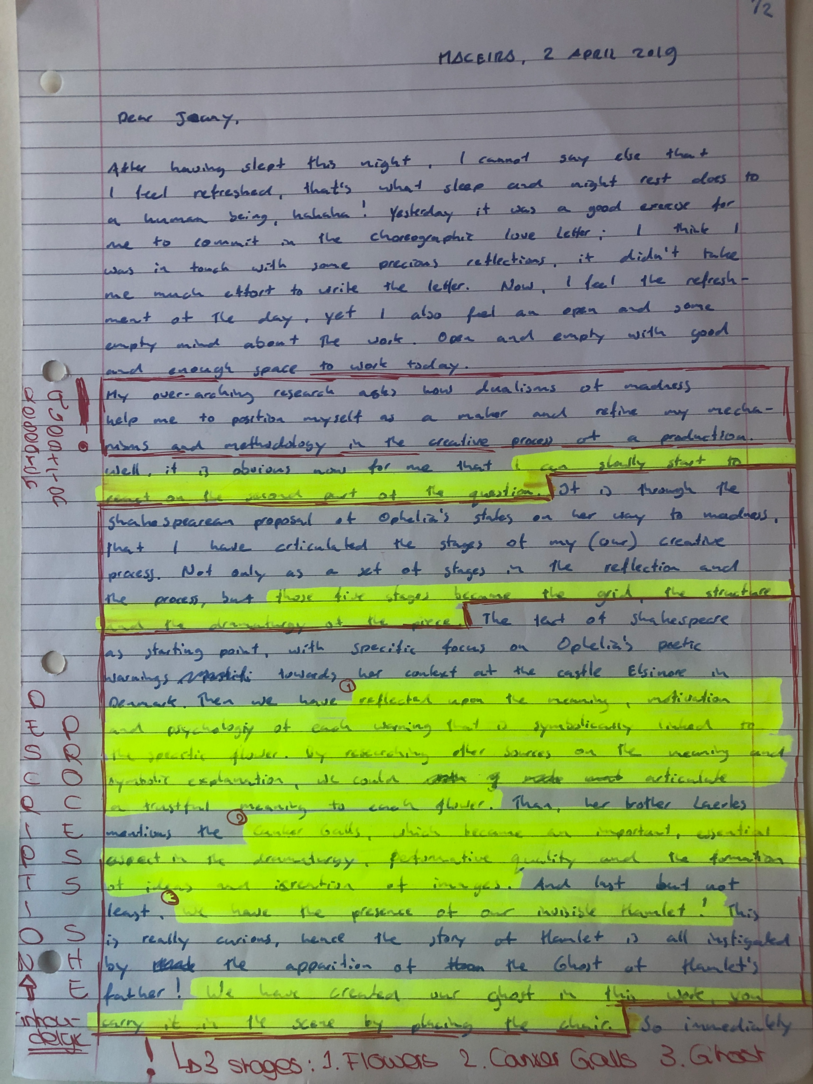 1/2
MACEIRA, 2 APRIL 2019
Dear Jeany,
After having slept this night, I cannot say else that
I feel refreshed, that's what sleep and night rest does to
a human being, hahaha! Yesterday it was a good exercise for
me to commit in the choreographic love letter; I think I
was in touch with some precious reflections, it didn't take
me much effort to write the letter. Now, I feel the refresh-
ment of the day, yet I also feel an open and some
empty mind about the work. Open and empty with good
and enough space to work today.
My over-arching research asks how dualisms of madness
help me to position myself as a maker and refine my mecha-
nisms and methodology in the creative process of a production.
Well, it is obvious now for me that I can gladly start to
react on the second part of the question. It is through the
Shakespearean proposal of Ophelia's states on her way to madness,
that I have articulated the stages of my (our) creative
process. Not only as a set of stages in the reflection and
the process, but those five stages became the grid, the structure
and the dramaturgy of the piece. The text of Shakespeare
as starting point, with specific focus on Ophelia's poetic
warnings towards her context at the castle Elsinore in
Denmark. Then we have ① reflected upon the meaning, motivation
and psychology of each warning that is symbolically linked to
the specific flower. By researching other sources on the meaning and
symbolic explanation, we could articulate
a trustful meaning to each flower. Than, her brother Laertes
mentions the ② Canker Galls, which became an important, essential
aspect in the dramaturgy, performative quality and the formation
of ideas and iscreation of images. And last but not
least, ③ we have the presence of our invisible Hamlet! This
is really curious, hence the story of Hamlet is all instigated
by the apparition of the Ghost of Hamlet's
father! We have created our ghost in this work, you
carry it in the score by placing the chair. So immediately
! ↳ 3 stages: 1. Flowers 2. Canker Galls 3. Ghost
PROCESS HE
DESCRIPTION
inhou-
delijk